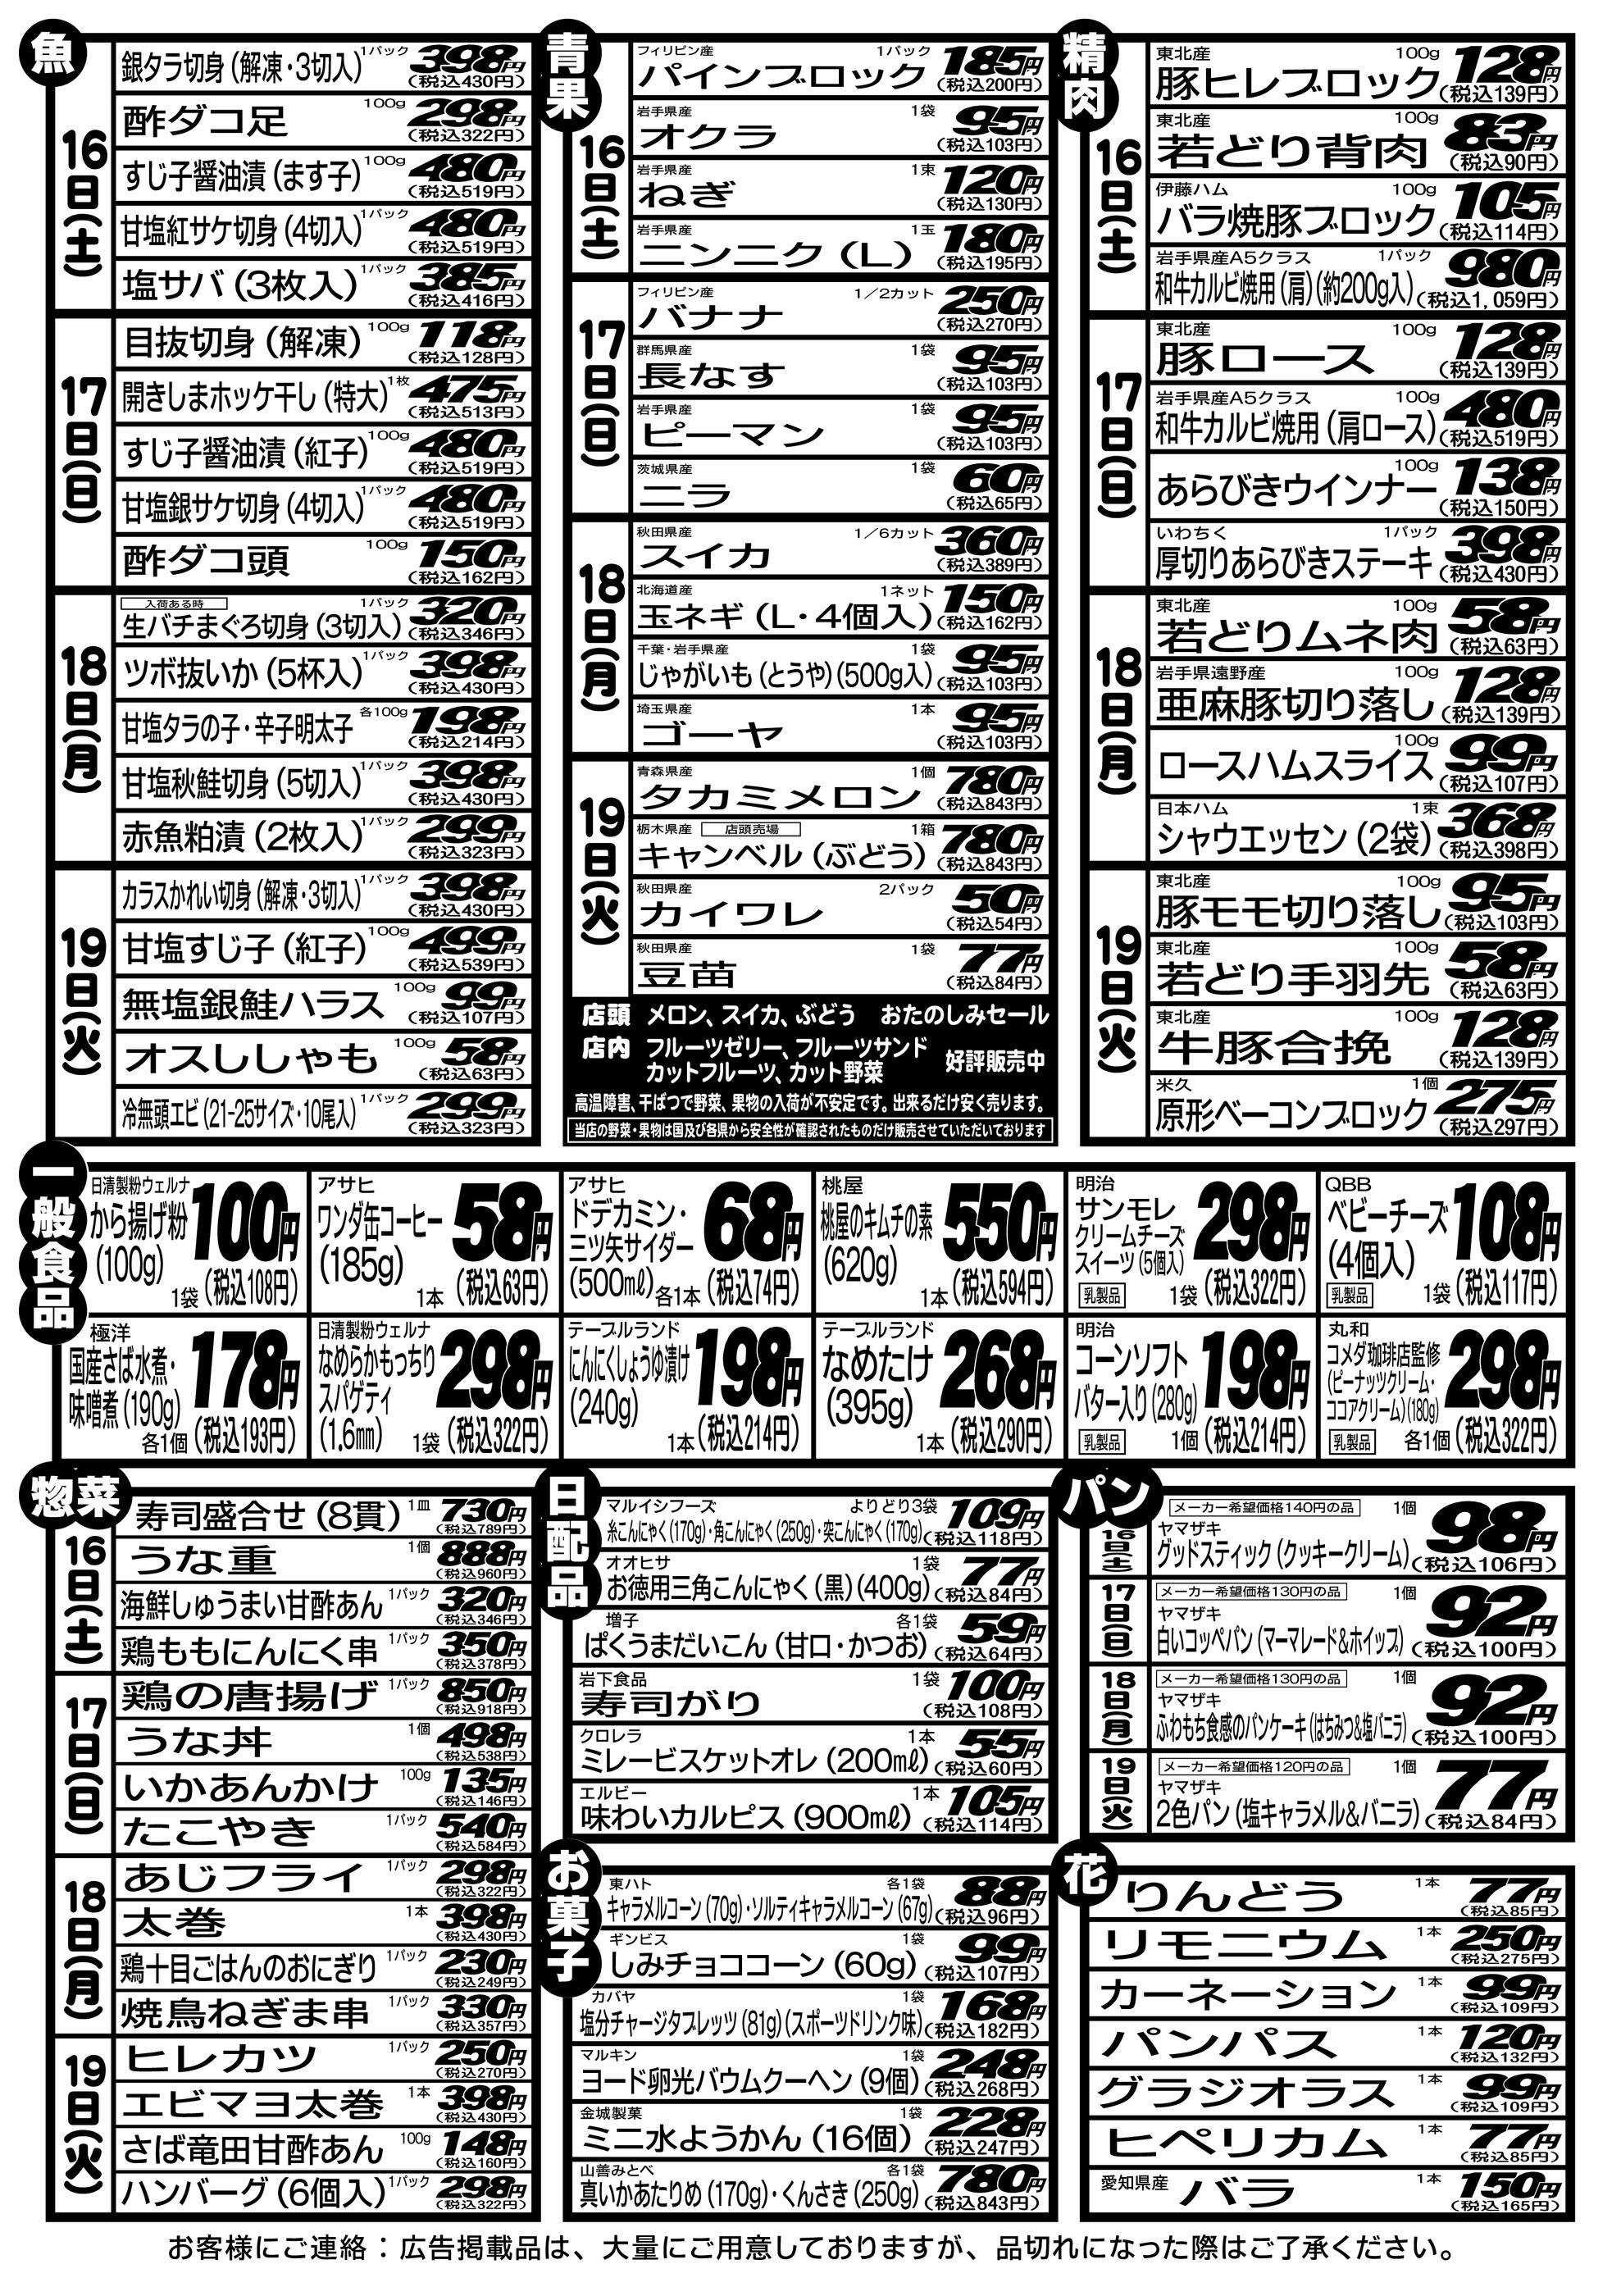 魚
16日(土)
銀タラ切身(解凍・3切入) 1パック 398円 (税込430円)
酢ダコ足 100g 298円 (税込322円)
すじ子醤油漬(ます子) 100g 480円 (税込519円)
甘塩紅サケ切身(4切入) 1パック 480円 (税込519円)
塩サバ(3枚入) 1パック 385円 (税込416円)
17日(日)
目抜切身(解凍) 100g 118円 (税込128円)
開きしまホッケ干し(特大) 1枚 475円 (税込513円)
すじ子醤油漬(紅子) 100g 480円 (税込519円)
甘塩銀サケ切身(4切入) 1パック 480円 (税込519円)
酢ダコ頭 100g 150円 (税込162円)
18日(月)
入荷ある時
生バチまぐろ切身(3切入) 1パック 320円 (税込346円)
ツボ抜いか(5杯入) 1パック 398円 (税込430円)
甘塩タラの子・辛子明太子 各100g 198円 (税込214円)
甘塩秋鮭切身(5切入) 1パック 398円 (税込430円)
赤魚粕漬(2枚入) 1パック 299円 (税込323円)
19日(火)
カラスかれい切身(解凍・3切入) 1パック 398円 (税込430円)
甘塩すじ子(紅子) 100g 499円 (税込539円)
無塩銀鮭ハラス 100g 99円 (税込107円)
オスししゃも 100g 58円 (税込63円)
冷無頭エビ(21-25サイズ・10尾入) 1パック 299円 (税込323円)
青果
16日(土)
フィリピン産 1パック
パインブロック 185円 (税込200円)
岩手県産 1袋
オクラ 95円 (税込103円)
岩手県産 1束
ねぎ 120円 (税込130円)
岩手県産 1玉
ニンニク(L) 180円 (税込195円)
17日(日)
フィリピン産 1/2カット
バナナ 250円 (税込270円)
群馬県産 1袋
長なす 95円 (税込103円)
岩手県産 1袋
ピーマン 95円 (税込103円)
茨城県産 1袋
ニラ 60円 (税込65円)
18日(月)
秋田県産 1/6カット
スイカ 360円 (税込389円)
北海道産 1ネット
玉ネギ(L・4個入) 150円 (税込162円)
千葉・岩手県産 1袋
じゃがいも(とうや)(500g入) 95円 (税込103円)
埼玉県産 1本
ゴーヤ 95円 (税込103円)
19日(火)
青森県産 1個
タカミメロン 780円 (税込843円)
栃木県産 店頭売場 1箱
キャンベル(ぶどう) 780円 (税込843円)
秋田県産 2パック
カイワレ 50円 (税込54円)
秋田県産 1袋
豆苗 77円 (税込84円)
店頭 メロン、スイカ、ぶどう おたのしみセール
店内 フルーツゼリー、フルーツサンド
カットフルーツ、カット野菜 好評販売中
高温障害、干ばつで野菜、果物の入荷が不安定です。出来るだけ安く売ります。
当店の野菜・果物は国及び各県から安全性が確認されたものだけ販売させていただいております
精肉
16日(土)
東北産 100g
豚ヒレブロック 128円 (税込139円)
東北産 100g
若どり背肉 83円 (税込90円)
伊藤ハム 100g
バラ焼豚ブロック 105円 (税込114円)
岩手県産A5クラス 1パック
和牛カルビ焼用(肩)(約200g入) 980円 (税込1,059円)
17日(日)
東北産 100g
豚ロース 128円 (税込139円)
岩手県産A5クラス 100g
和牛カルビ焼用(肩ロース) 480円 (税込519円)
100g
あらびきウインナー 138円 (税込150円)
いわちく 1パック
厚切りあらびきステーキ 398円 (税込430円)
18日(月)
東北産 100g
若どりムネ肉 58円 (税込63円)
岩手県遠野産 100g
亜麻豚切り落し 128円 (税込139円)
100g
ロースハムスライス 99円 (税込107円)
日本ハム 1束
シャウエッセン(2袋) 368円 (税込398円)
19日(火)
東北産 100g
豚モモ切り落し 95円 (税込103円)
東北産 100g
若どり手羽先 58円 (税込63円)
東北産 100g
牛豚合挽 128円 (税込139円)
米久 1個
原形ベーコンブロック 275円 (税込297円)
一般食品
日清製粉ウェルナ
から揚げ粉
(100g)
100円
1袋 (税込108円)
アサヒ
ワンダ缶コーヒー
(185g)
58円
1本 (税込63円)
アサヒ
ドデカミン・
三ツ矢サイダー
(500mℓ)
68円
各1本 (税込74円)
桃屋
桃屋のキムチの素
(620g)
550円
1本 (税込594円)
明治
サンモレ
クリームチーズ
スイーツ(5個入)
298円
乳製品 1袋 (税込322円)
QBB
ベビーチーズ
(4個入)
108円
乳製品 1袋 (税込117円)
極洋
国産さば水煮・
味噌煮(190g)
178円
各1個 (税込193円)
日清製粉ウェルナ
なめらかもっちり
スパゲティ
(1.6mm)
298円
1袋 (税込322円)
テーブルランド
にんにくしょうゆ漬け
(240g)
198円
1本 (税込214円)
テーブルランド
なめたけ
(395g)
268円
1本 (税込290円)
明治
コーンソフト
バター入り(280g)
198円
乳製品 1個 (税込214円)
丸和
コメダ珈琲店監修
(ピーナッツクリーム・
ココアクリーム)(180g)
298円
乳製品 各1個 (税込322円)
惣菜
16日(土)
寿司盛合せ(8貫) 1皿 730円 (税込789円)
うな重 1個 888円 (税込960円)
海鮮しゅうまい甘酢あん 1パック 320円 (税込346円)
鶏ももにんにく串 1パック 350円 (税込378円)
17日(日)
鶏の唐揚げ 1パック 850円 (税込918円)
うな丼 1個 498円 (税込538円)
いかあんかけ 100g 135円 (税込146円)
たこやき 1パック 540円 (税込584円)
18日(月)
あじフライ 1パック 298円 (税込322円)
太巻 1本 398円 (税込430円)
鶏十目ごはんのおにぎり 1パック 230円 (税込249円)
焼鳥ねぎま串 1パック 330円 (税込357円)
19日(火)
ヒレカツ 1パック 250円 (税込270円)
エビマヨ太巻 1本 398円 (税込430円)
さば竜田甘酢あん 100g 148円 (税込160円)
ハンバーグ(6個入) 1パック 298円 (税込322円)
日配品
マルイシフーズ よりどり3袋
糸こんにゃく(170g)・角こんにゃく(250g)・突こんにゃく(170g) 109円 (税込118円)
オオヒサ 1袋
お徳用三角こんにゃく(黒)(400g) 77円 (税込84円)
増子 各1袋
ぱくうまだいこん(甘口・かつお) 59円 (税込64円)
岩下食品 1袋
寿司がり 100円 (税込108円)
クロレラ 1本
ミレービスケットオレ(200mℓ) 55円 (税込60円)
エルビー 1本
味わいカルピス(900mℓ) 105円 (税込114円)
お菓子
東ハト 各1袋
キャラメルコーン(70g)・ソルティキャラメルコーン(67g) 88円 (税込96円)
ギンビス 1袋
しみチョココーン(60g) 99円 (税込107円)
カバヤ 1袋
塩分チャージタブレッツ(81g)(スポーツドリンク味) 168円 (税込182円)
マルキン 1袋
ヨード卵光バウムクーヘン(9個) 248円 (税込268円)
金城製菓 1袋
ミニ水ようかん(16個) 228円 (税込247円)
山善みとべ 各1袋
真いかあたりめ(170g)・くんさき(250g) 780円 (税込843円)
パン
16日(土)
メーカー希望価格140円の品 1個
ヤマザキ
グッドスティック(クッキークリーム) 98円 (税込106円)
17日(日)
メーカー希望価格130円の品 1個
ヤマザキ
白いコッペパン(マーマレード&ホイップ) 92円 (税込100円)
18日(月)
メーカー希望価格130円の品 1個
ヤマザキ
ふわもち食感のパンケーキ(はちみつ&塩バニラ) 92円 (税込100円)
19日(火)
メーカー希望価格120円の品 1個
ヤマザキ
2色パン(塩キャラメル&バニラ) 77円 (税込84円)
花
りんどう 1本 77円 (税込85円)
リモニウム 1本 250円 (税込275円)
カーネーション 1本 99円 (税込109円)
パンパス 1本 120円 (税込132円)
グラジオラス 1本 99円 (税込109円)
ヒペリカム 1本 77円 (税込85円)
愛知県産 バラ 1本 150円 (税込165円)
お客様にご連絡：広告掲載品は、大量にご用意しておりますが、品切れになった際はご了承ください。